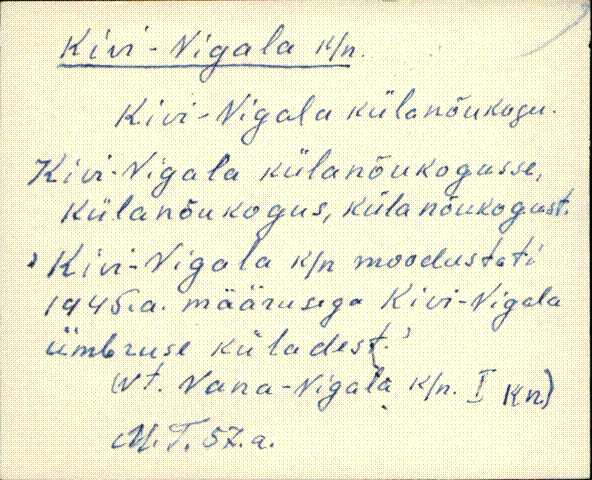 Kivi-Nigala k/n.
Kivi-Nigala külanõukogu.
Kivi-Nigala külanõukogusse,
külanõukogus, külanõukogust.
' Kivi-Nigala k/n moodustati
1945.a. määrusega Kivi-Nigala
ümbruse küladest.'
(vt. Vana-Nigala k/n. I kn.)
M.T. 57.a.